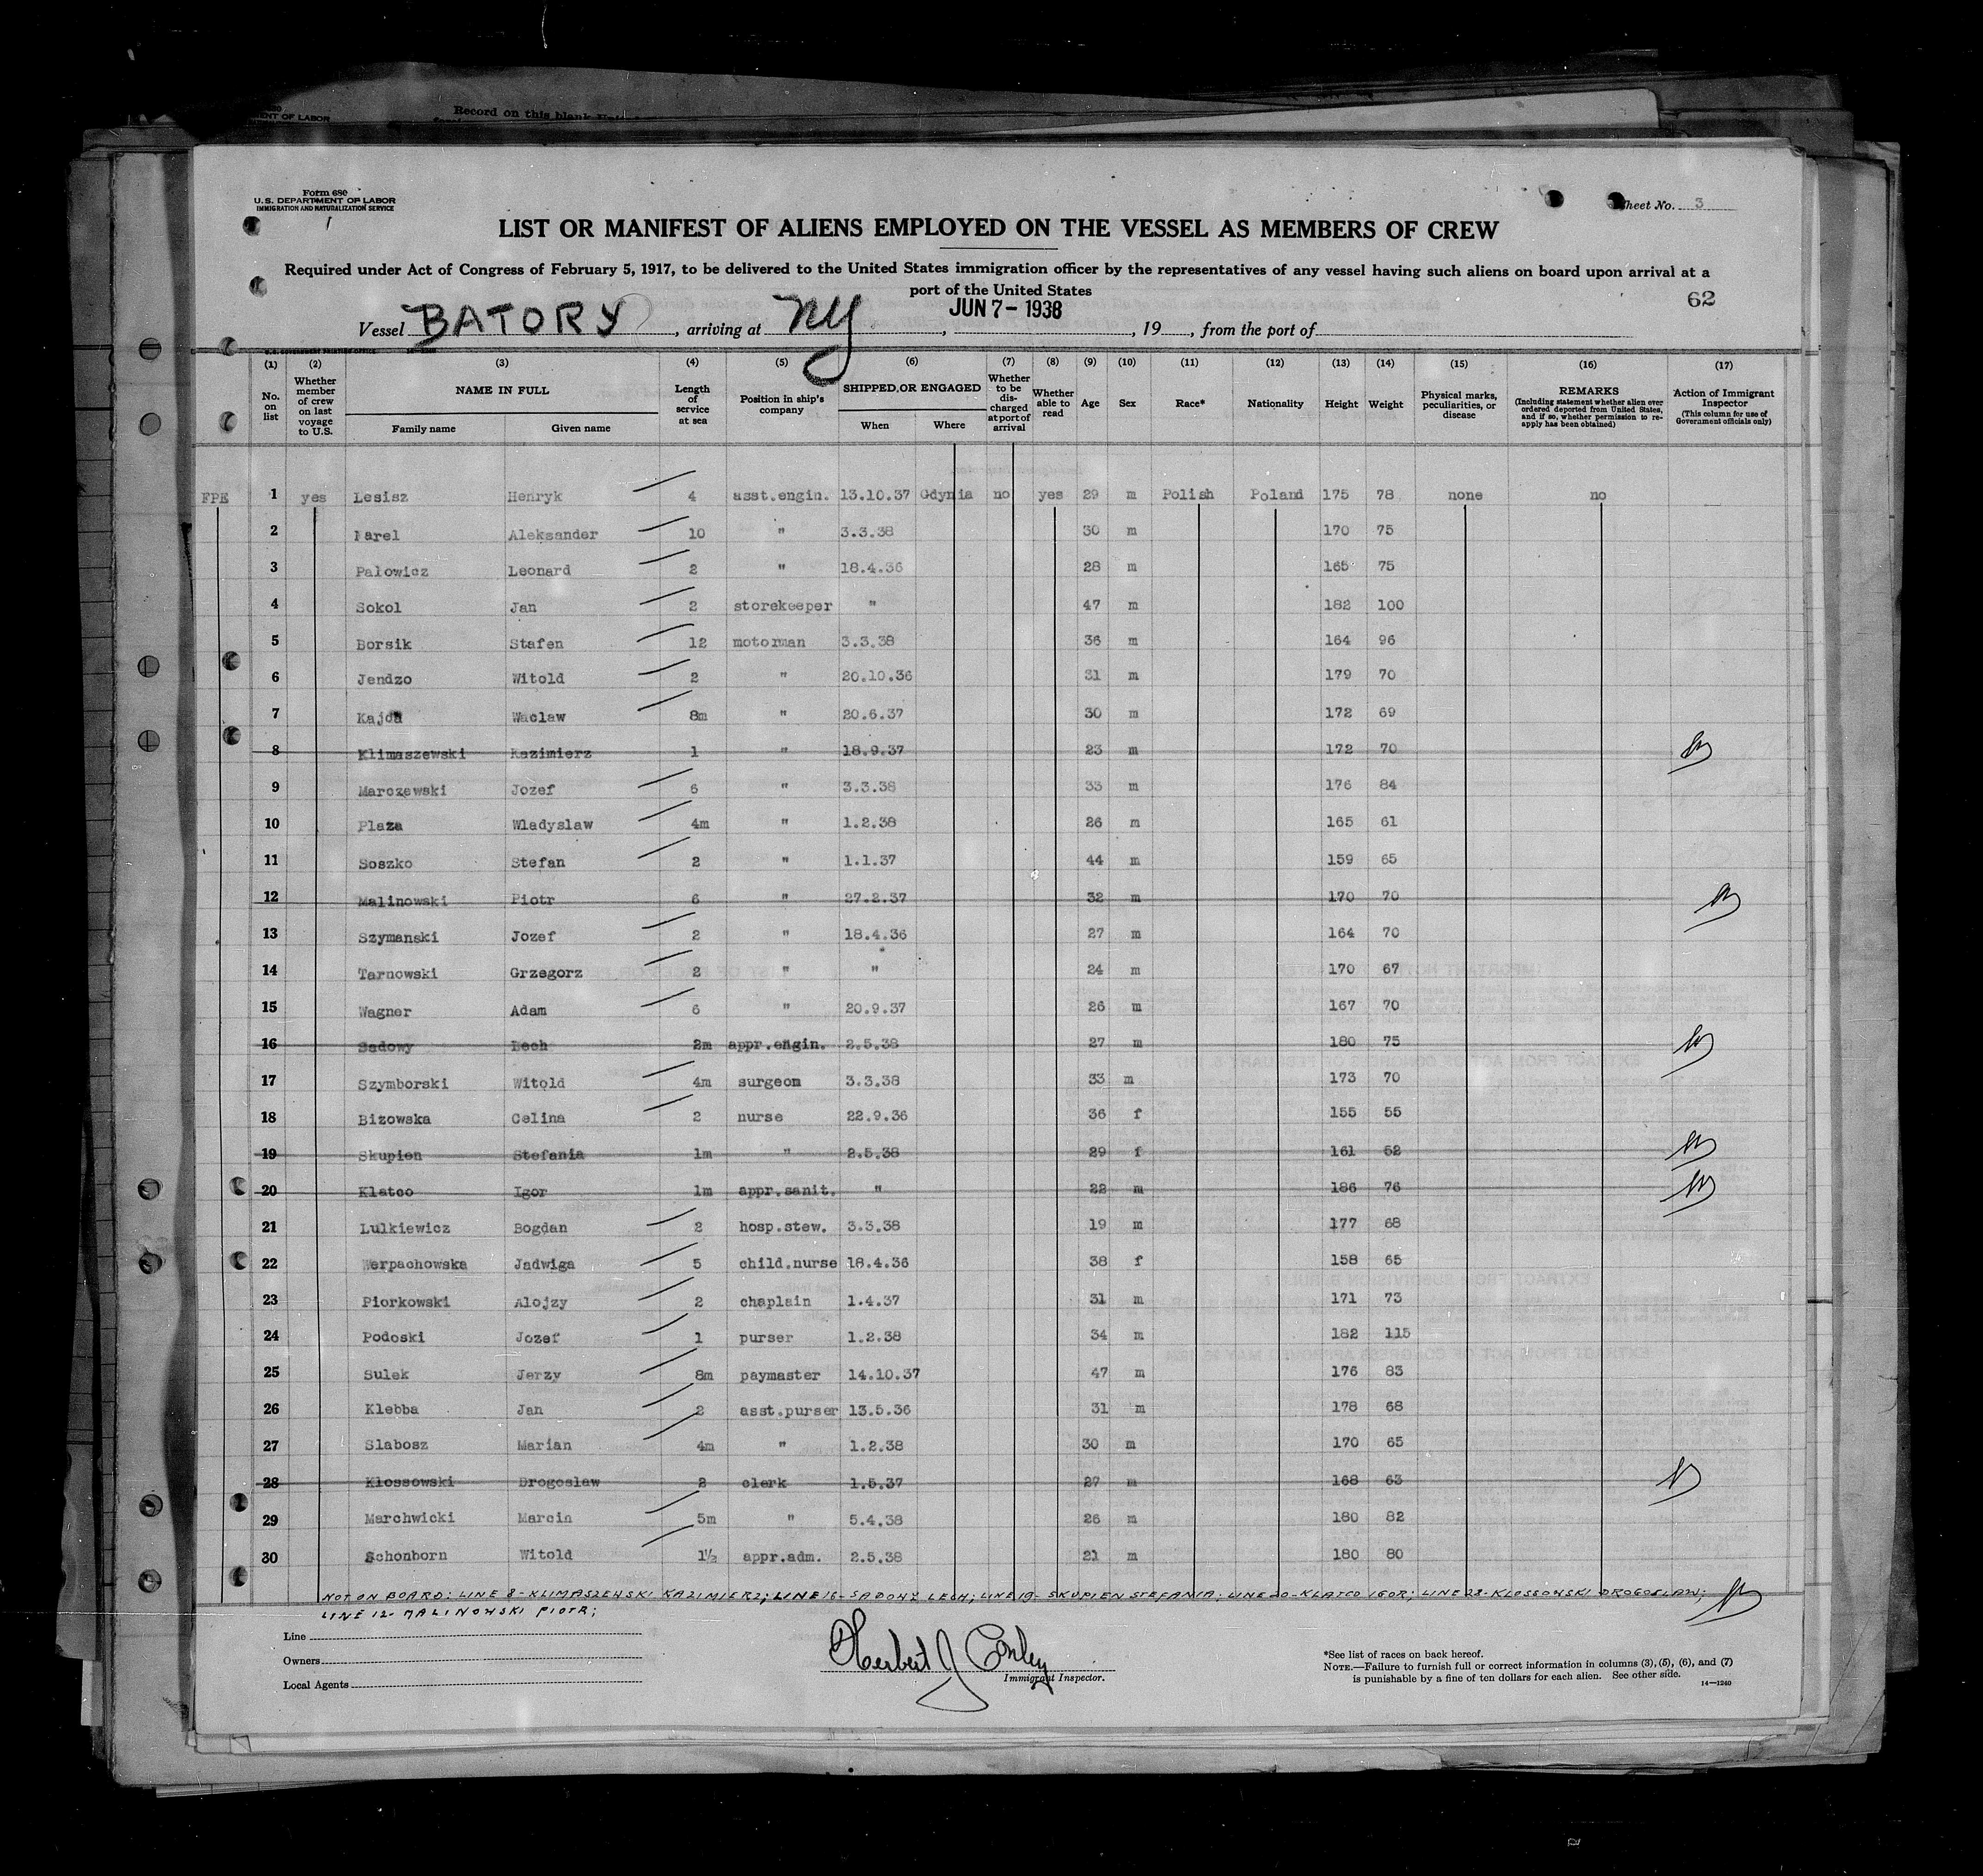 ENT OF LABOR
Record on this blank
Form 680
U.S. DEPARTMENT OF LABOR
IMMIGRATION AND NATURALIZATION SERVICE
Sheet No. 3
LIST OR MANIFEST OF ALIENS EMPLOYED ON THE VESSEL AS MEMBERS OF CREW
Required under Act of Congress of February 5, 1917, to be delivered to the United States immigration officer by the representatives of any vessel having such aliens on board upon arrival at a
port of the United States
62
Vessel BATORY, arriving at NY, JUN 7 - 1938, 19, from the port of
(1) (2) (3) (4) (5) (6) (7) (8) (9) (10) (11) (12) (13) (14) (15) (16) (17)
No. on list | Whether member of crew on last voyage to U.S. | NAME IN FULL Family name Given name | Length of service at sea | Position in ship's company | SHIPPED OR ENGAGED When Where | Whether to be discharged at port of arrival | Whether able to read | Age | Sex | Race* | Nationality | Height | Weight | Physical marks, peculiarities, or disease | REMARKS (Including statement whether alien ever ordered deported from United States, and if so, whether permission to re-apply has been obtained) | Action of Immigrant Inspector (This column for use of Government officials only)
FPE 1 yes Lesisz Henryk 4 asst.engin. 13.10.37 Gdynia no yes 29 m Polish Poland 175 78 none no
2 Parel Aleksander 10 " 3.3.38 30 m 170 75
3 Palowicz Leonard 2 " 18.4.36 28 m 165 75
4 Sokol Jan 2 storekeeper " 47 m 182 100
5 Borsik Stafen 12 motorman 3.3.38 36 m 164 96
6 Jendzo Witold 2 " 20.10.36 31 m 179 70
7 Kajda Waclaw 8m " 20.6.37 30 m 172 69
8 Klimaszewski Kazimierz 1 " 18.9.37 23 m 172 70
9 Marczewski Jozef 6 " 3.3.38 33 m 176 84
10 Plaza Wladyslaw 4m " 1.2.38 26 m 165 61
11 Soszko Stefan 2 " 1.1.37 44 m 159 65
12 Malinowski Piotr 6 " 27.2.37 32 m 170 70
13 Szymanski Jozef 2 " 18.4.36 27 m 164 70
14 Tarnowski Grzegorz 2 " " 24 m 170 67
15 Wagner Adam 6 " 20.9.37 26 m 167 70
16 Sadowy Lech 2m appr.engin. 2.5.38 27 m 180 75
17 Szymborski Witold 4m surgeon 3.3.38 33 m 173 70
18 Bizowska Celina 2 nurse 22.9.36 36 f 155 55
19 Skupien Stefania 1m " 2.5.38 29 f 161 52
20 Klatco Igor 1m appr.sanit. " 22 m 186 76
21 Lulkiewicz Bogdan 2 hosp.stew. 3.3.38 19 m 177 68
22 Werpachowska Jadwiga 5 child.nurse 18.4.36 38 f 158 65
23 Piorkowski Alojzy 2 chaplain 1.4.37 31 m 171 73
24 Podoski Jozef 1 purser 1.2.38 34 m 182 115
25 Sulek Jerzy 8m paymaster 14.10.37 47 m 176 83
26 Klebba Jan 2 asst.purser 13.5.36 31 m 178 68
27 Slabosz Marian 4m " 1.2.38 30 m 170 65
28 Klossowski Drogoslaw 2 clerk 1.5.37 27 m 168 63
29 Marchwicki Marcin 5m " 5.4.38 26 m 180 82
30 Schonborn Witold 1½ appr.adm. 2.5.38 21 m 180 80
NOT ON BOARD: LINE 8 - KLIMASZEWSKI KAZIMIERZ; LINE 16 - SADOWY LECH; LINE 19 - SKUPIEN STEFANIA; LINE 20 - KLATCO IGOR; LINE 28 - KLOSSOWSKI DROGOSLAW;
LINE 12 - MALINOWSKI PIOTR;
Line
Owners
Local Agents
Herbert J Conley
Immigrant Inspector.
*See list of races on back hereof.
NOTE.—Failure to furnish full or correct information in columns (3), (5), (6), and (7)
is punishable by a fine of ten dollars for each alien. See other side.
14—1240